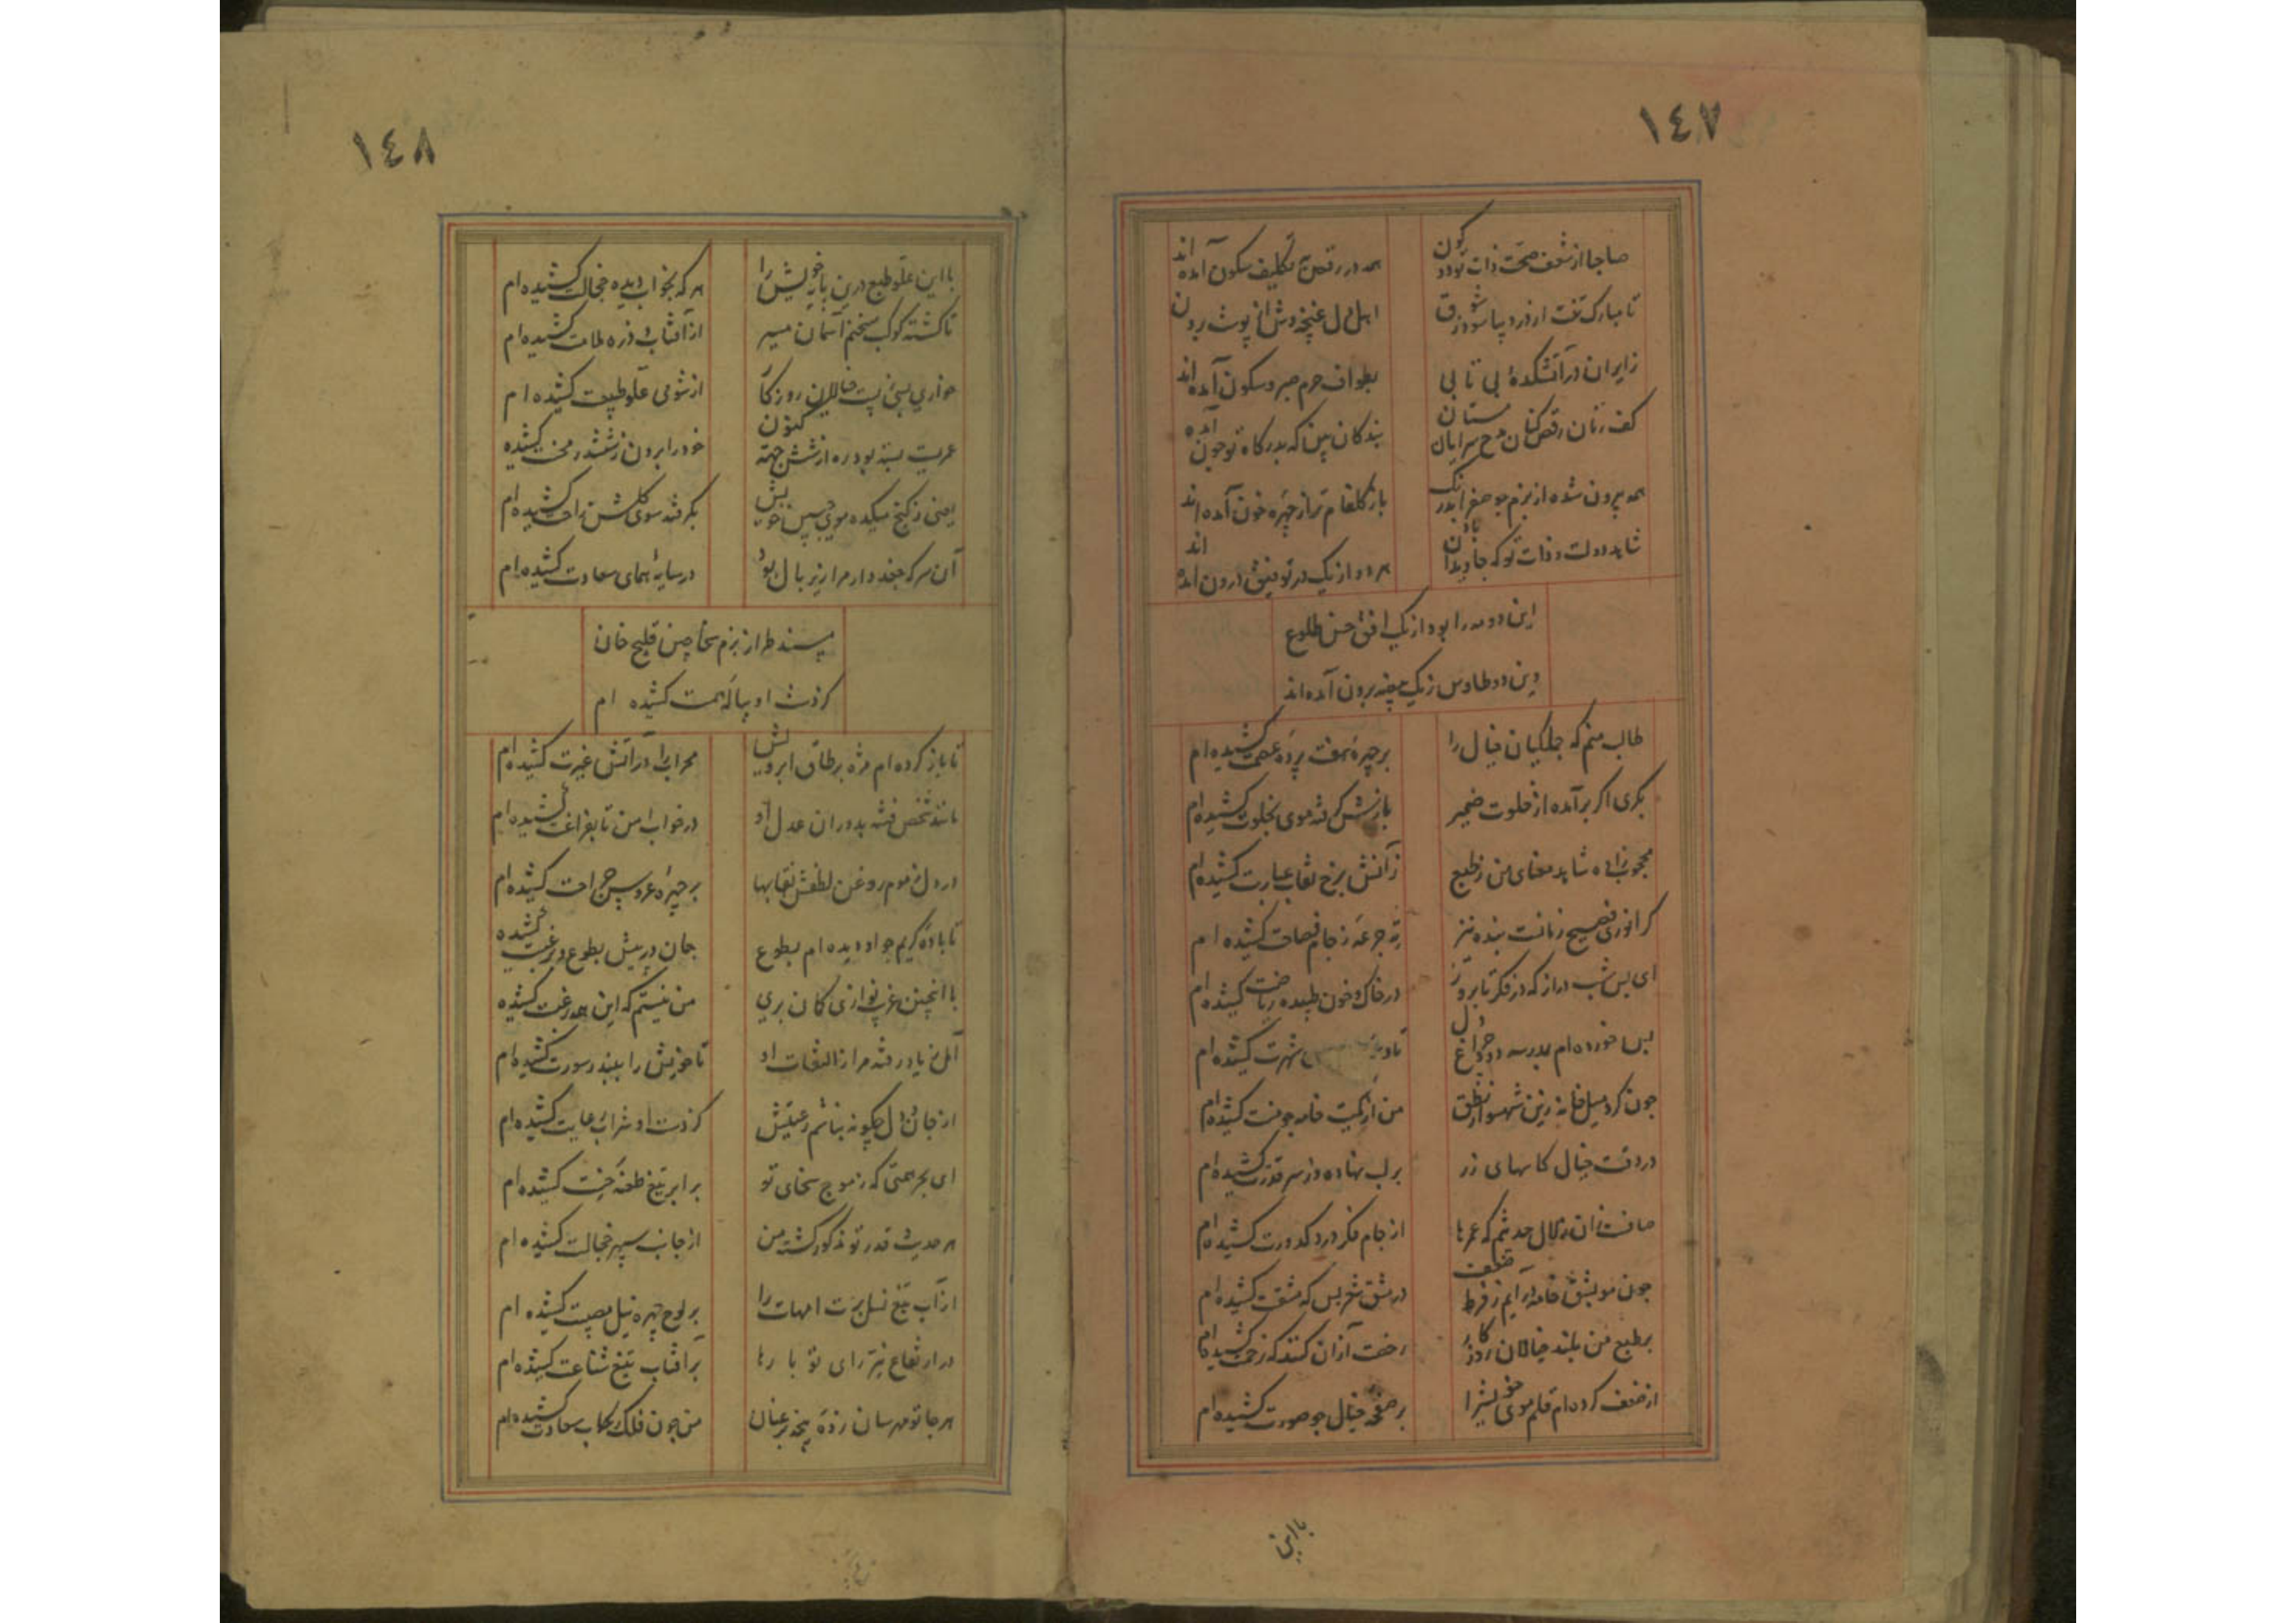 ١٤٧
صاحبا از شعف صحت ذات تو درون
همه در رقص تکلیف سکون آمده اند
تا مبارک تنت از درد بیاسود ز شوق
اهل دل غنچه وش از پوست برون
ز ایران در آتشکدهٔ بی تابی
بطواف حرم صبر و سکون آمده اند
کف زنان رقص کنان مدح سرایان مستان
بندکان بین که بدرکاه تو چون آمده
همه بیرون شده از بزم تو
باز کلفام تر از چهره خون آمده اند
شاید دولت و ذات تو که جاویدان باد
هر دو از یک در توفیق درون آمده اند
این دو مه را بود از یک افق حسن طلوع
وین دو طاوس ز یک بیضه برون آمده اند
طالب منم که جملکیان خیال را
بر چهره هفت پرده عصمت کشیده ام
بکری اکر برآمده از خلوت ضمیر
بازش کرفته موی بخلوت کشیده ام
محجوب زاده شاید معنای من ز طبع
زآتش برخ نقاب عبارت کشیده ام
کر انوری فصیح زمانست بنده نیز
ته جرعه ز جام فصاحت کشیده ام
ای بس شب دراز که در فکر تا بروز
در خاک و خون طپیده ریاضت کشیده ام
بس خورده ام بمدرسه دود چراغ دل
شهرت کشیده ام
چون کرد میل خانه زین شهسوار نطق
من از کمیت خامه جو منت کشیده ام
در دقت خیال کاسهای زر
بر لب نهاده در سر قدرت کشیده ام
صافست از آن زلال حدیثم که عمرها
از جام فکر درد کدورت کشیده ام
چون مو بشق خامه درآیم ز فرط ضعف
در مشق شعر بس که مشقت کشیده ام
بر طبع من بلند خیالان روزکار
رحمت از آن کنند که زحمت کشیده ام
از ضعف کرده ام قلم موی خویش را
بر صفحه خیال جو صورت کشیده ام
با این
١٤٨
با این علو طبع درین پایه خویش را
هر که بخواب دیده خجالت کشیده ام
تا کشته کوکب سخنم آسمان مسیر
از آفتاب و ذره ملامت کشیده ام
خواری بسی ز پست خیالان روزکار
از شومی علو طبیعت کشیده ام
عمریست بسته بود ره از شش جهة کنون
خود را برون ز ششدر محنت کشیده
یعنی ز کنج میکده موی جبین خویش
بکرفته سوی کلشن راحت کشیده ام
آن سر که جغد وار مرا زیر بال بود
در سایهٔ همای سعادت کشیده ام
مسند طراز بزم سخا چین قلیج خان
کز دست او پیالهٔ همت کشیده ام
تا باز کرده ام مژه بر طاق ابرویش
محراب را در آتش غیرت کشیده ام
مانند شخص فتنه بدوران عدل او
در خواب امن تا بفراغت کشیده ام
در دل ز موم روغن لطفش نقابها
بر چهره عروس جراحت کشیده ام
تا بادهٔ کریم جو او دیده ام بطوع
جان در پیش بطوع و برغبت کشیده
با انچنین غریب نوازی کمان بری
من نیستم که این همه رغبت کشیده
اهل ز یاد رفته مرا ز التفات او
تا خویش را ببندر سورت کشیده ام
از جان و دل چکونه نباشم رعیتش
کز دست او شراب رعایت کشیده ام
ای بحر همتی که ز موج سخای تو
بر ابر تیغ طعنهٔ خست کشیده ام
هر حدیث قدر تو مذکور کشته من
از جانب سپهر خجالت کشیده ام
از آب تیغ نسل برت امهات را
بر لوح چهره نیل مصیبت کشیده ام
در ارتفاع نیر رای تو بارها
بر آفتاب تیغ شناعت کشیده ام
هر جا تو مهرسان زدهٔ پنجه بر عنان
من چون فلک رکاب سعادت کشیده ام